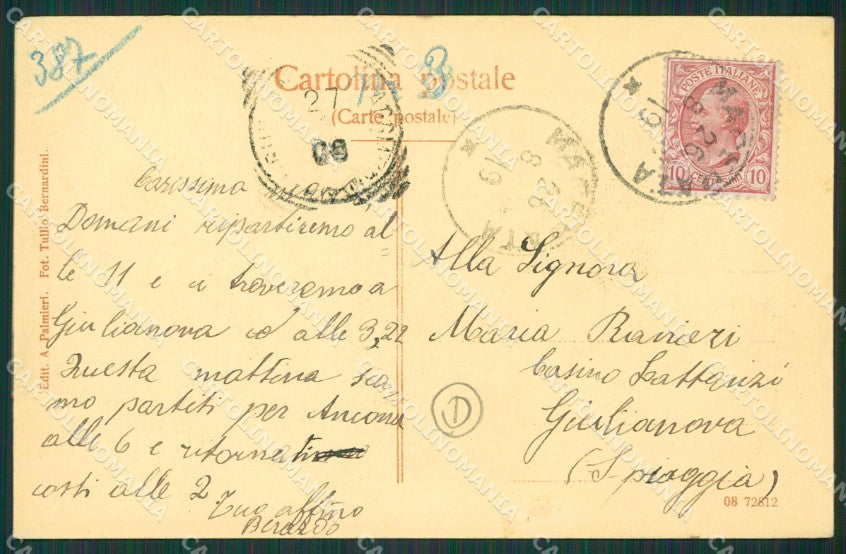 387
3
Cartolina postale
(Carte postale)
POSTE ITALIANE
10 CENTESIMI 10
08
8 26
8 26
Edit. A. Palmieri. Fot. Tullio Bernardini.
Carissima
Domani ripartiremo al
le 11 e ci troveremo a
Giulianova alle 3,22
Questa mattina sia
mo partiti per Ancona
alle 6 e
costì alle 2
Tuo affmo
Berardo
Alla Signora
Maria Ranieri
Casino Lattanzi
Giulianova
(Spiaggia)
D
08 72812
CARTOLINOMANIA